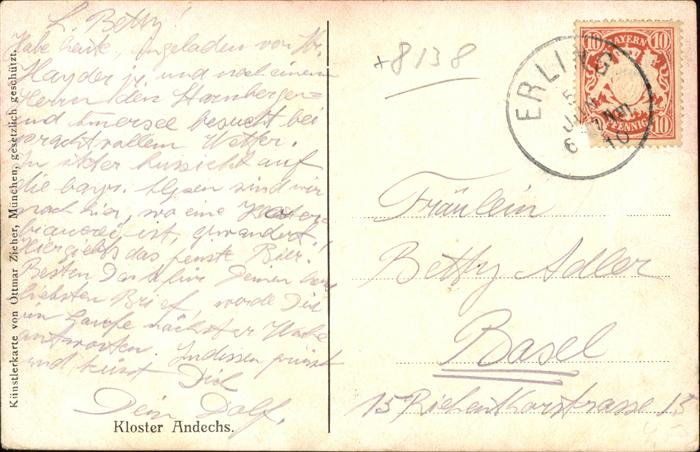 L. Betty!
Habe heute, eingeladen von Hr.
Hayder jr. und noch einem
Herrn den Starnberger-
und Ammersee besucht bei
prachtvollem Wetter.
In Aussicht auf
die bayr. Alpen sind wir
noch hier, wo eine Kloster-
brauerei ist, gewandert!
Hier giebts das feinste Bier.
Besten Dank für Deinen
liebsten Brief, werde Dir
im Laufe nächster Woche
antworten. Indessen grüsst
und küsst Dich
Dein Dolf.
Kloster Andechs.
Künstlerkarte von Ottmar Zieher, München, gesetzlich geschützt.
+8138
BAYERN
10 10
10 PFENNIG 10
ERLING
5
JUN
6 NM
10
Fräulein
Betty Adler
Basel
15 Riehenthorstrasse 15